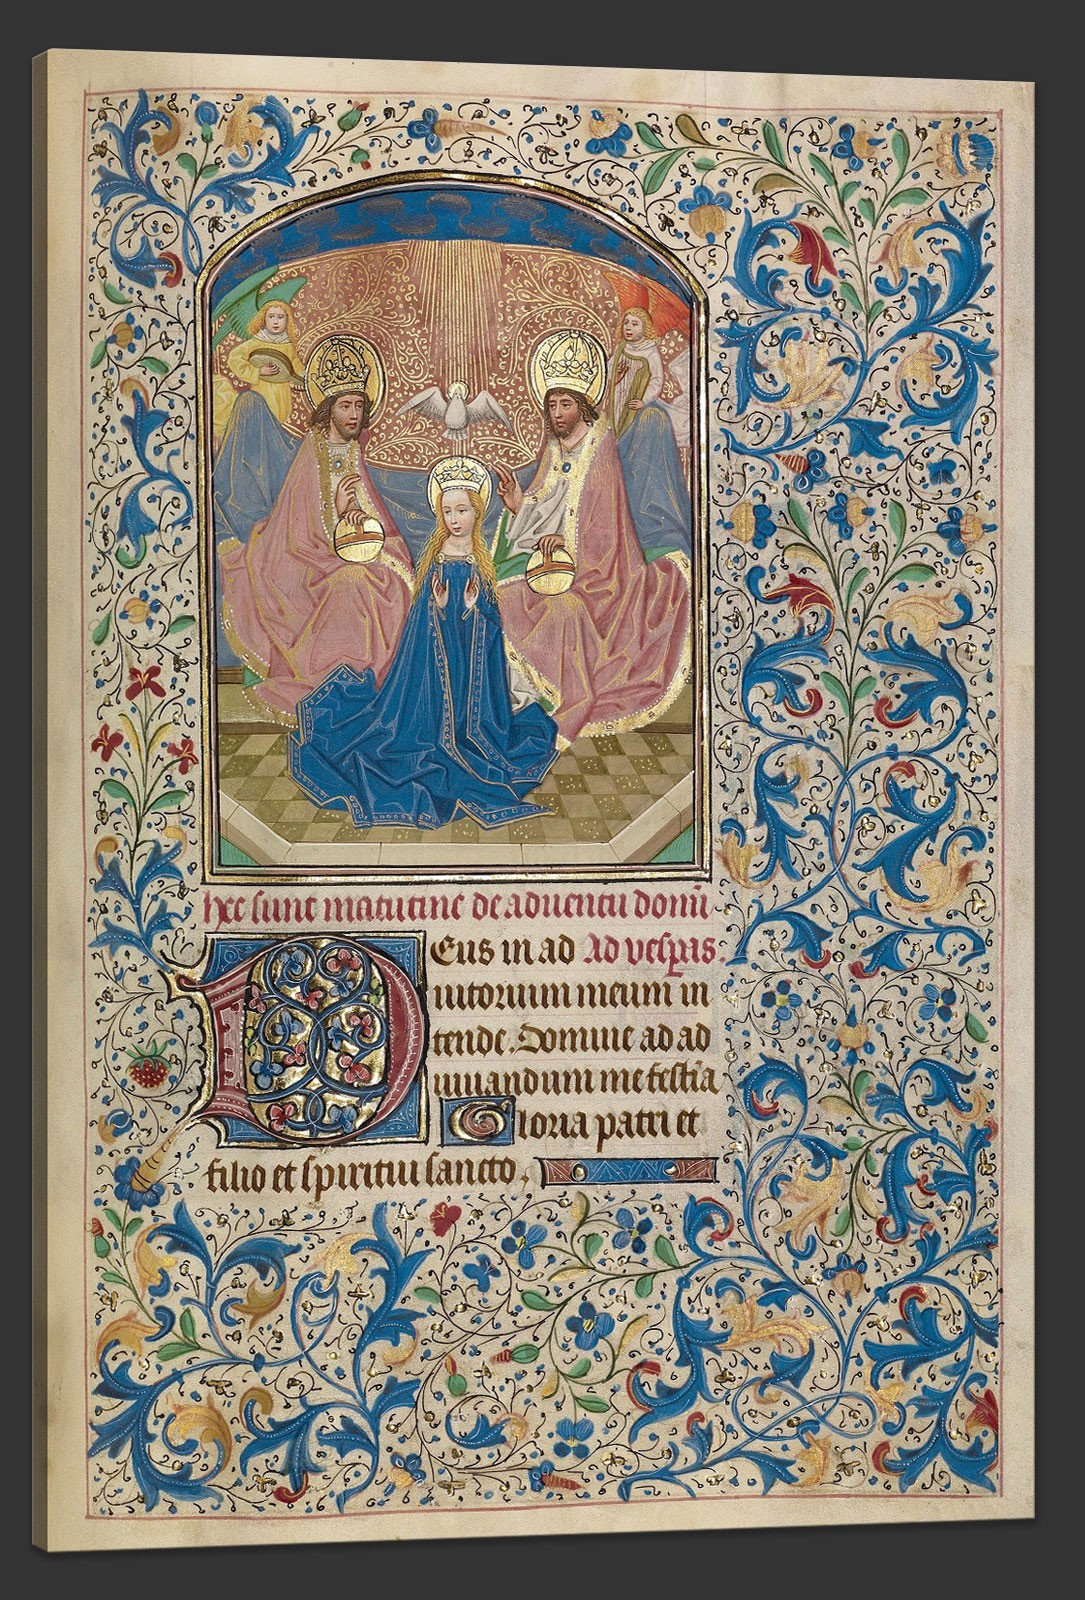 hec sunt matutine de aduentu domi̅
Deus in ad Ad vesp̲as:
iutorium meum in
tende. Domine ad ad
iuuandum me festi̅a
Gloria patri et
filio et spiritui sancto.